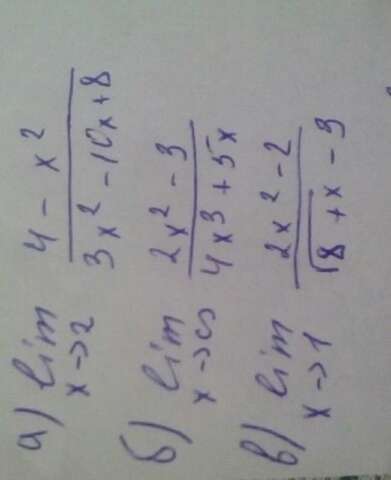 а) lim x→2 4 - x² / 3x² - 10x + 8
б) lim x→∞ 2x² - 3 / 4x³ + 5x
в) lim x→1 2x² - 2 / √8 + x - 3